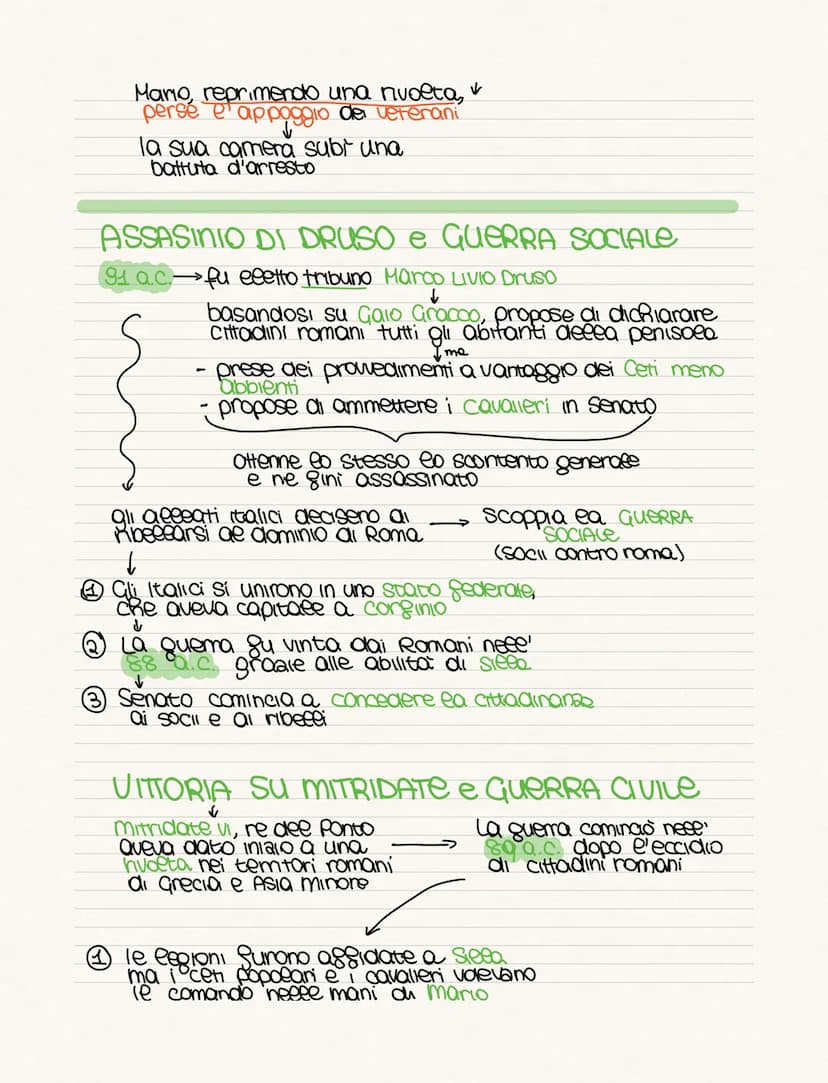 Mario, reprimendo una rivolta,
perse l'appoggio dei veterani
la sua carriera subì una
battuta d'arresto
ASSASINIO DI DRUSO e GUERRA SOCIALE
91 a.C. → fu eletto tribuno Marco Livio Druso
basandosi su Gaio Gracco, propose di dichiarare
cittadini romani tutti gli abitanti della penisola
ma
- prese dei provvedimenti a vantaggio dei Ceti meno
abbienti
- propose di ammettere i cavalieri in Senato
Ottenne lo stesso lo scontento generale
e ne finì assassinato
gli alleati italici decisero di → Scoppia la GUERRA
ribellarsi al dominio di Roma SOCIALE
(socii contro roma)
① Gli Italici si unirono in uno stato federale,
che aveva capitale a Corfinio
② La guerra fu vinta dai Romani nell'
88 a.C. grazie alle abilità di Silla
③ Senato comincia a concedere la cittadinanza
ai socii e ai ribelli
VITTORIA SU MITRIDATE e GUERRA CIVILE
Mitridate VI, re del Ponto La guerra cominciò nell'
aveva dato inizio a una → 89 a.C. dopo l'eccidio
rivolta nei territori romani di cittadini romani
di Grecia e Asia Minore
① le legioni furono affidate a Silla
ma i ceti popolari e i cavalieri volevano
le comando nelle mani di Mario